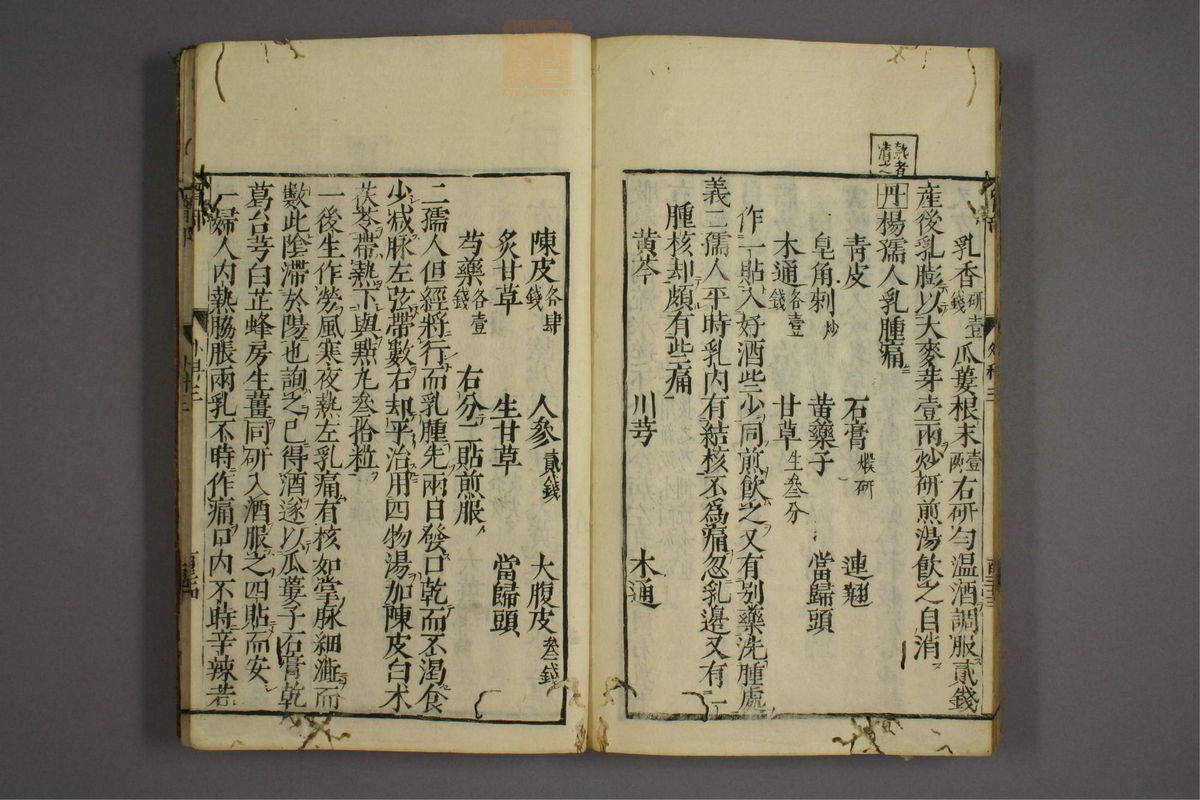 熱者
清之
乳香研壹錢瓜蔞根末壹兩右研勻温酒調服貳錢
産後乳膨以大麥芽壹兩炒研煎湯飲之自消
丹楊孺人乳腫痛
青皮 石膏煆研 連翹
皂角刺炒 黄藥子 當歸頭
木通各壹錢 甘草生叁分
作一貼入好酒些少同煎飲之又有别藥洗腫處
義二孺人平時乳内有結核不爲痛忽乳邉又有一
腫核却頗有些痛
黄芩 川芎 木通
陳皮各肆錢 人參貳錢 大腹皮叁錢
炙甘草 生甘草 當歸頭
芍藥各壹錢 右分二貼煎服
二孺人但經將行而乳腫先兩日發口乾而不渴食
少减脉左弦帶數右却平治用四物湯加陳皮白术
茯苓帶熱下與點丸叁拾粒
一後生作勞風寒夜熱左乳痛有核如掌脉細濇而
數此隂滯於陽也詢之已得酒遂以瓜蔞子石膏乾
葛台芎白芷蜂房生薑同研入酒服之四貼而安
一婦人内熱脇脹兩乳不時作痛口内不時辛辣若